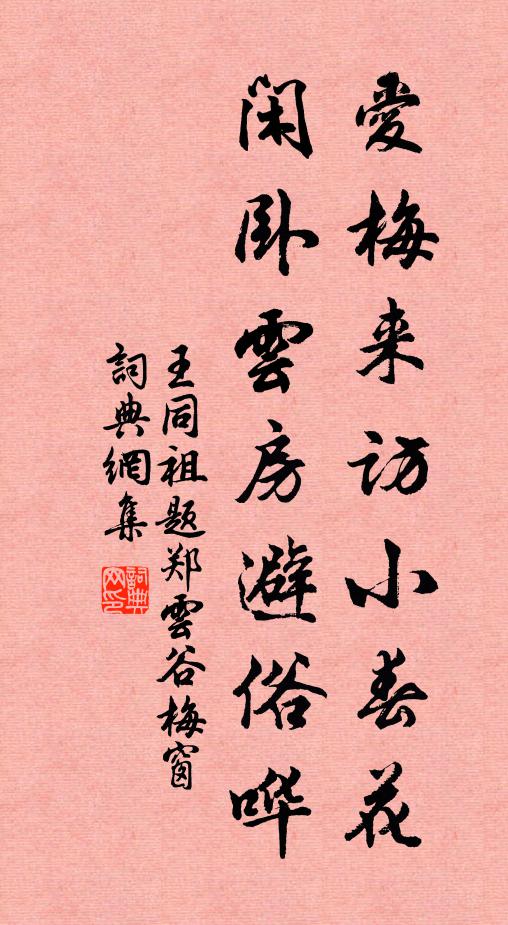 愛梅来访小春花
闲卧雲房避俗哗
王同祖题郑雲谷梅窗
詞典網集
詞典网印